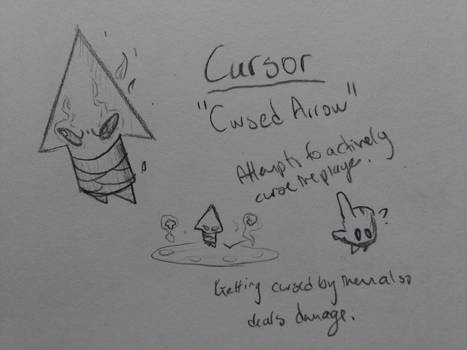 Cursor
"Cursed Arrow"
Attempts to actively
curse the player.
?
Getting cursed by them also
deals damage.